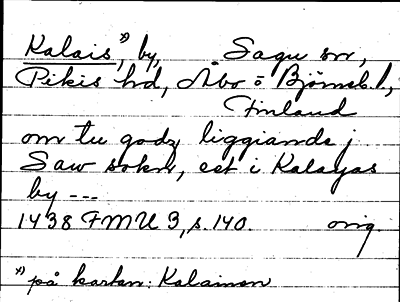 Kalais,*) by, Sagu sn,
Pikis hd, Åbo o Björneb. l,
Finland
om tu godz liggiande j
Saw sokn, eet i Kalayas
by ---
1438 FMU 3, s. 140. orig.
*) på kartan: Kalainen